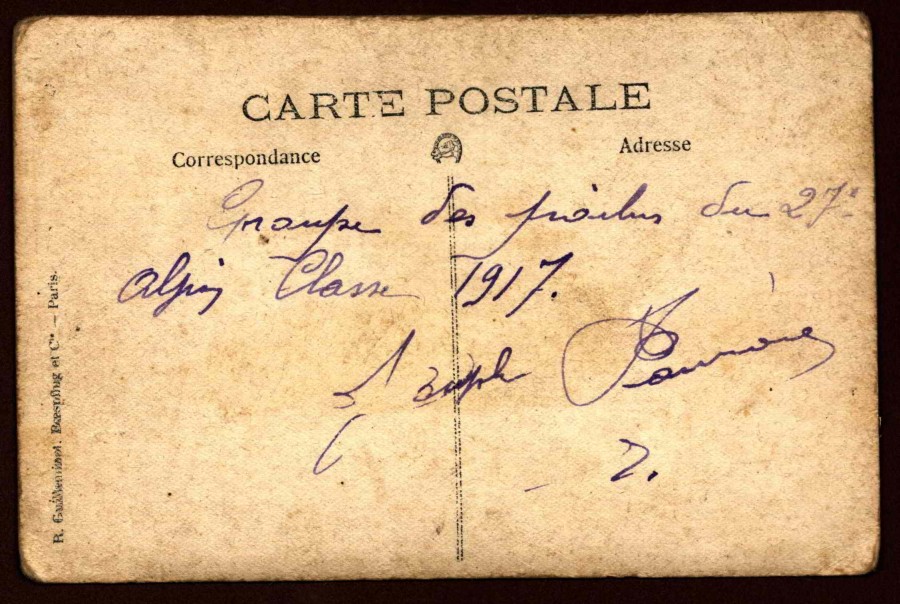 CARTE POSTALE
Correspondance
Adresse
Groupe des poilus du 27e
Alpin Classe 1917.
Joseph
R. Guilleminot, Bœspflug et Cie. – Paris.